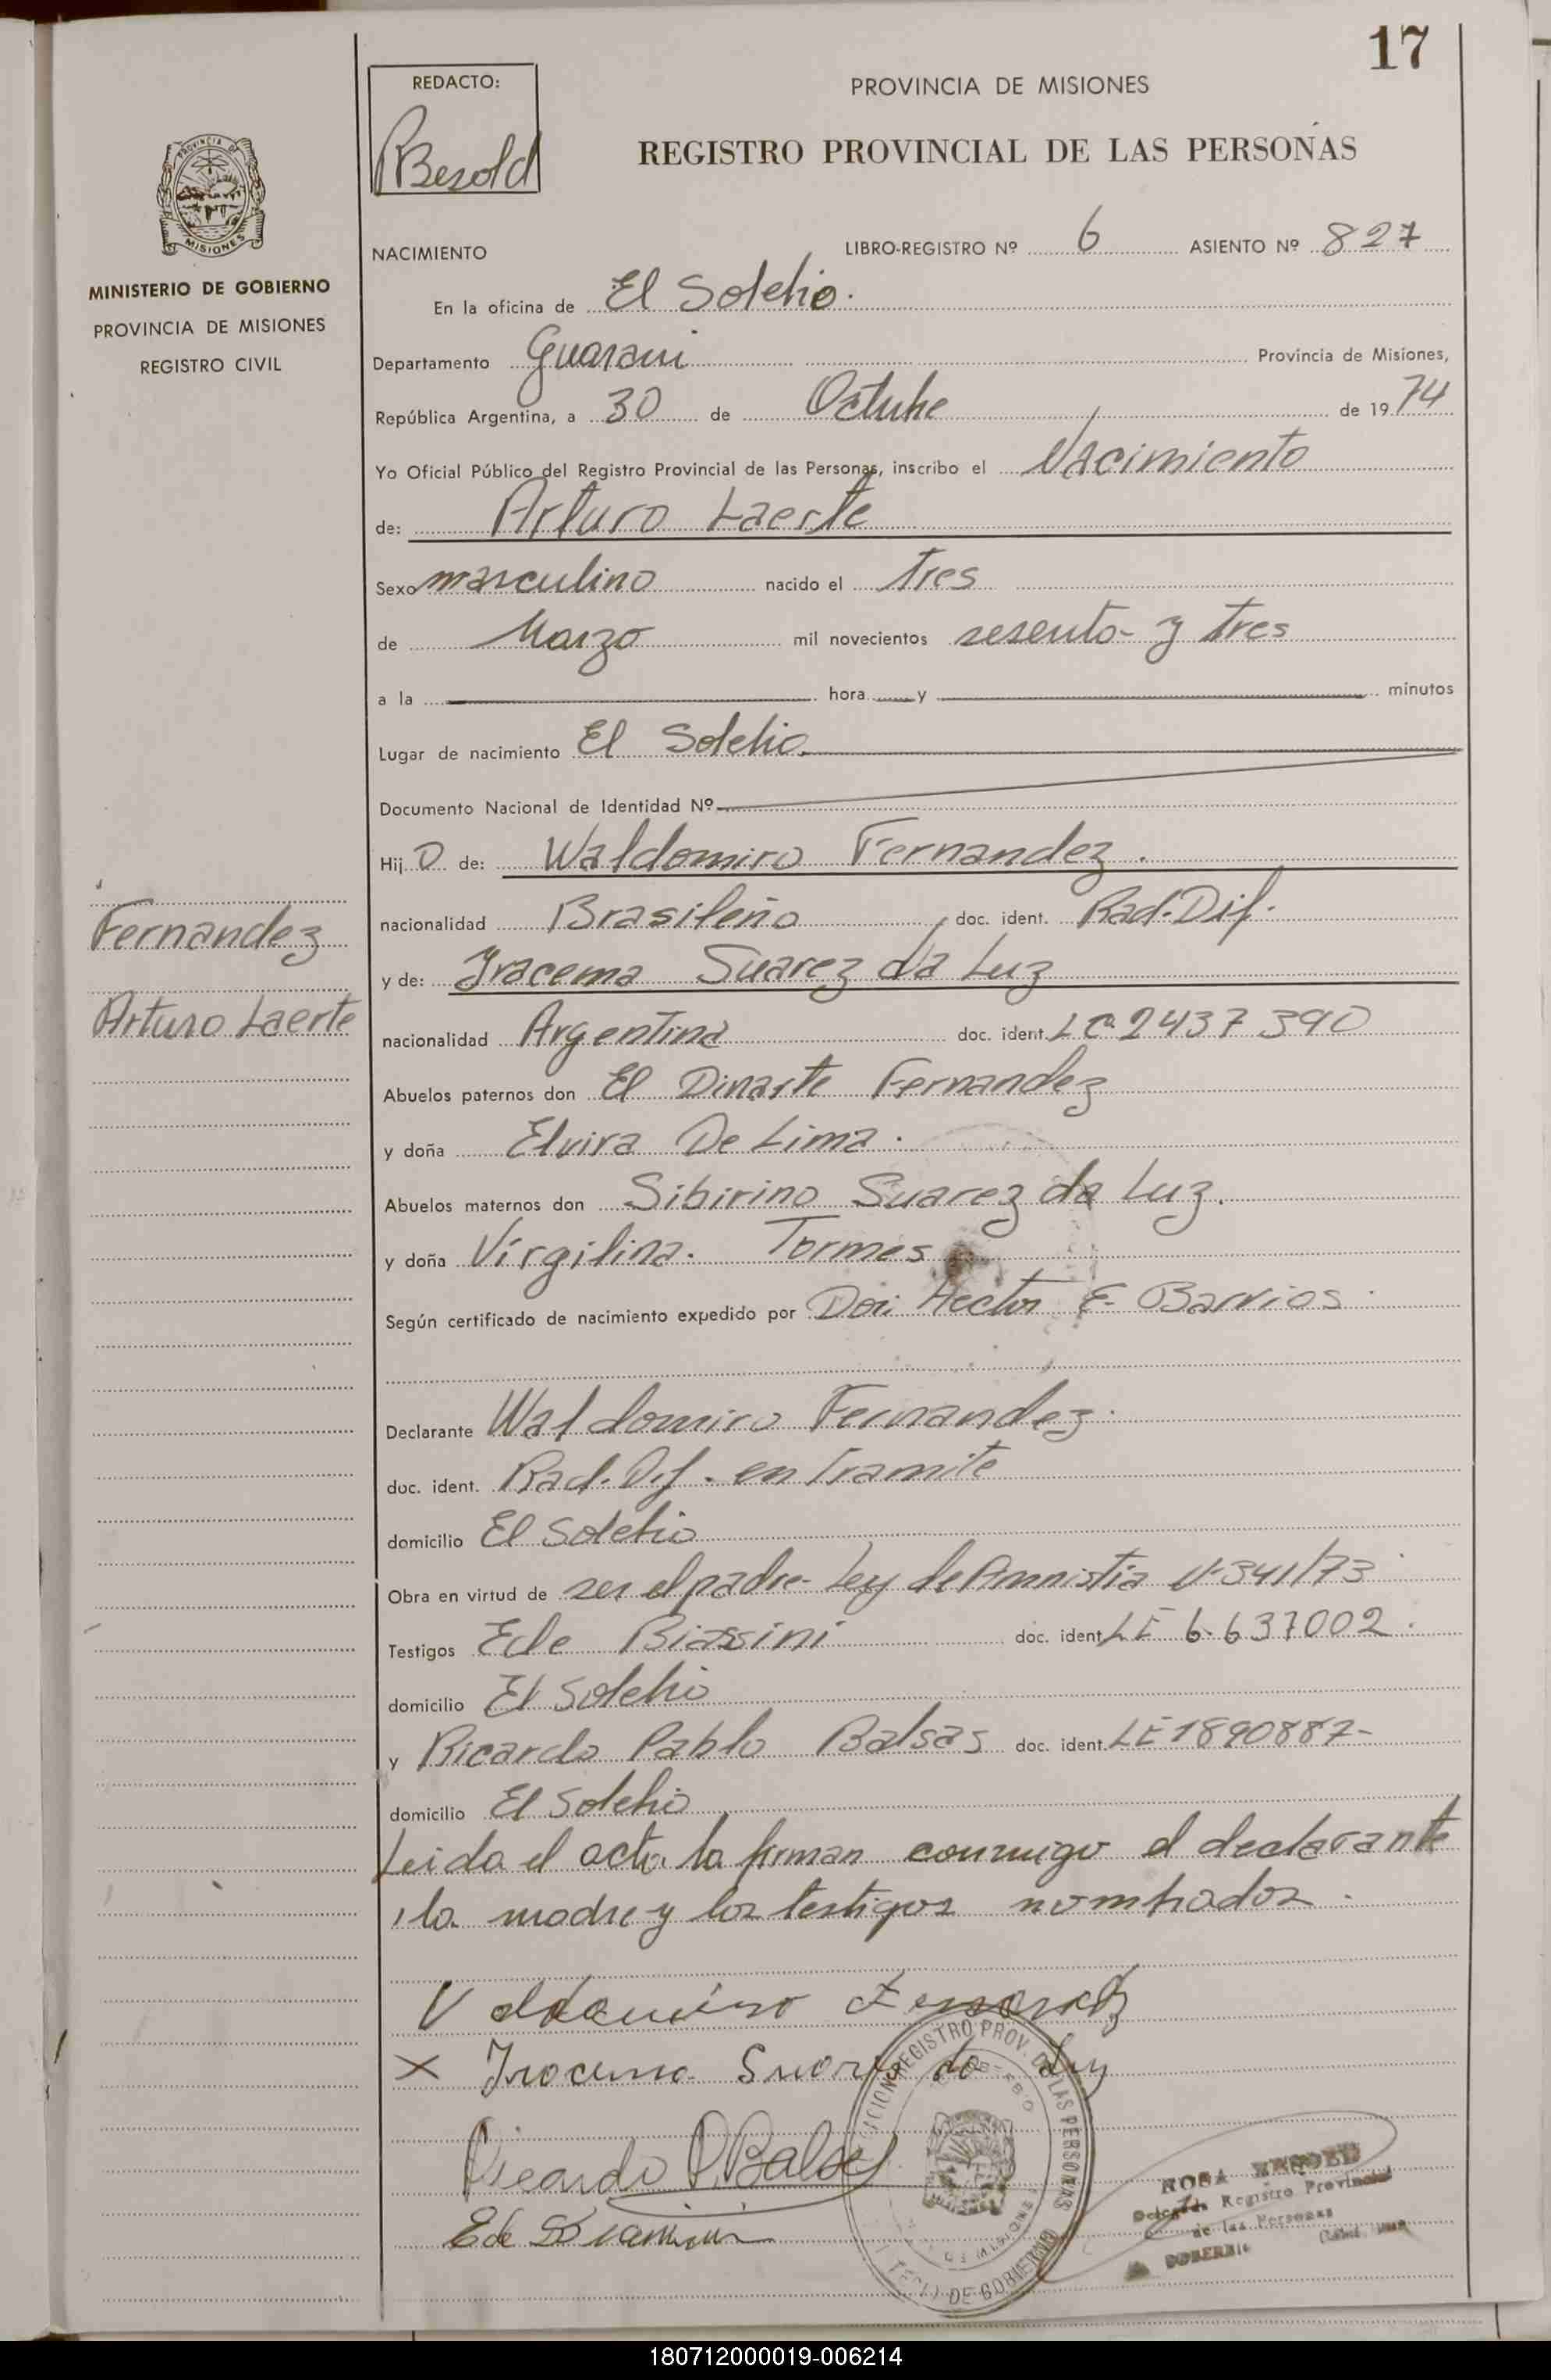 17
REDACTO:
PBesold
PROVINCIA DE MISIONES
REGISTRO PROVINCIAL DE LAS PERSONAS
PROVINCIA D
MISIONES
MINISTERIO DE GOBIERNO
PROVINCIA DE MISIONES
REGISTRO CIVIL
NACIMIENTO
LIBRO-REGISTRO Nº 6 ASIENTO Nº 827
En la oficina de El Soberbio.
Departamento Guarani Provincia de Misiones,
República Argentina, a 30 de Octubre de 19 74
Yo Oficial Público del Registro Provincial de las Personas, inscribo el Nacimiento
de: Arturo Laerte
Sexo masculino nacido el tres
de Marzo mil novecientos sesenta y tres
a la hora y minutos
Lugar de nacimiento El Soberbio.
Documento Nacional de Identidad Nº
Hij o de: Waldomiro Fernandez.
nacionalidad Brasileño doc. ident. Rad. Dif.
y de: Iracema Suarez da Luz
nacionalidad Argentina doc. ident. LC 2437390
Fernandez
Arturo Laerte
Abuelos paternos don El Dinarte Fernandez
y doña Elvira De Lima.
Abuelos maternos don Sibirino Suarez da Luz.
y doña Virgilina. Tormes
Según certificado de nacimiento expedido por Don Hector E. Barrios.
Declarante Waldomiro Fernandez.
doc. ident. Rad. Dif. en Tramite
domicilio El Soberbio
Obra en virtud de ser el padre- Ley de Amnistia Nº 341/73
Testigos Ede Biassini doc. ident. LE 6.637002.
domicilio El Soberbio
y Ricardo Pablo Balsas doc. ident. LE 1890887-
domicilio El Soberbio
Leida el acta la firman conmigo el declarante
, la madre y los testigos nombrados.
Valdomiro Fernandez
X Iracema Suare da Luz
Ricardo P. Balsas
Ede Biassini
REGISTRO PROV. DE LAS PERSONAS
DE GOBIERNO
ROSA
Delegada Registro Provincial
de las Personas
180712000019-006214